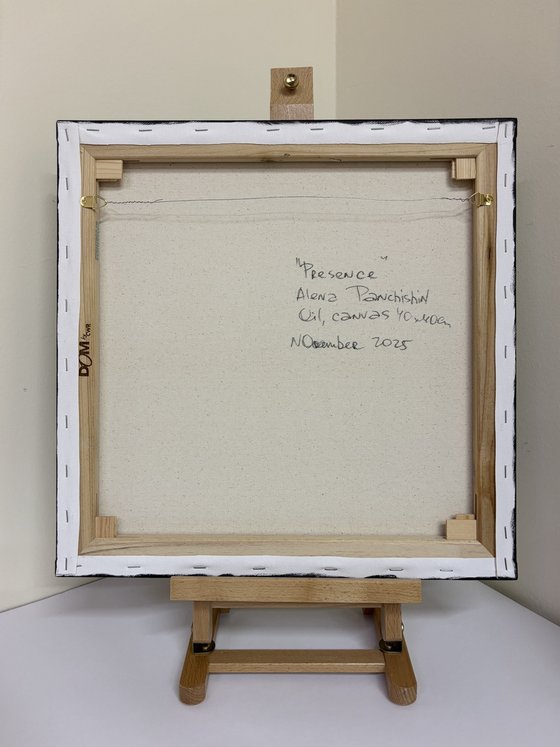 "Presence"
Alena Panchishin
Oil, canvas 40x40cm
November 2025
DOM